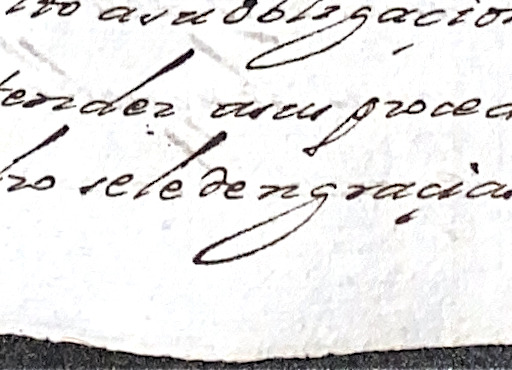 asu obligacion
tender asus proced
ro sele den gracias